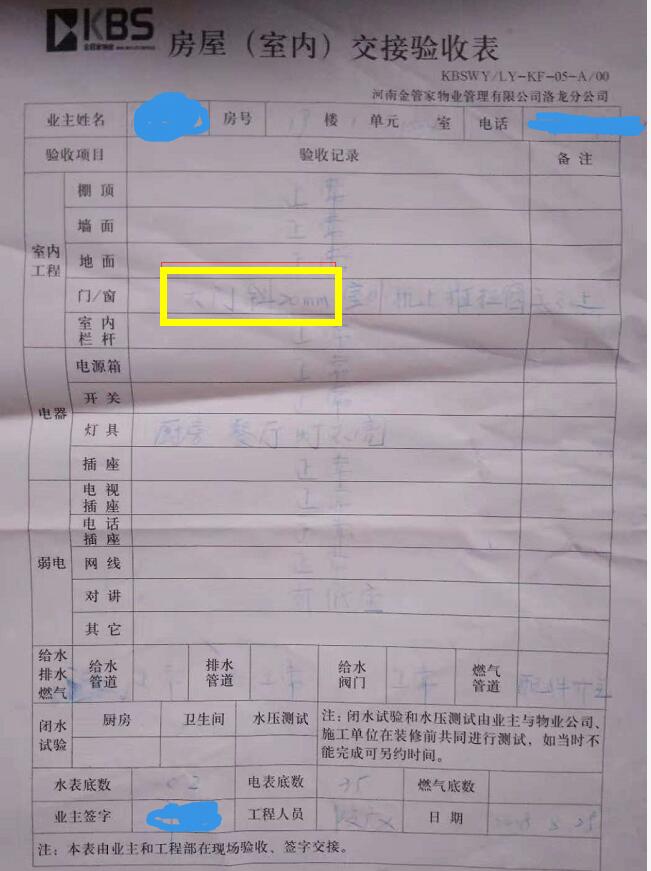 KBS
房屋（室内）交接验收表
KBSWY/LY-KF-05-A/00
河南金管家物业管理有限公司洛龙分公司
业主姓名 房号 楼 单元 室 电话
验收项目 验收记录 备注
室内工程
棚顶 正常
墙面 正常
地面 正常
门/窗 大门斜20mm
室内栏杆 正常
电器
电源箱 正常
开关 正常
灯具 厨房 餐厅 灯不亮
插座 正常
弱电
电视插座 正常
电话插座 正常
网线 正常
对讲
其它
给水排水燃气 给水管道 正常 排水管道 正常 给水阀门 正常 燃气管道
闭水试验 厨房 卫生间 水压测试 注：闭水试验和水压测试由业主与物业公司、
施工单位在装修前共同进行测试，如当时不
能完成可另约时间。
水表底数 02 电表底数 35 燃气底数
业主签字 工程人员 日期
注：本表由业主和工程部在现场验收、签字交接。